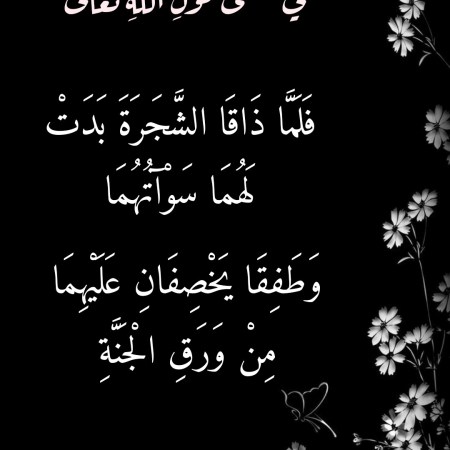 في معنى قول الله تعالى
فَلَمَّا ذَاقَا الشَّجَرَةَ بَدَتْ
لَهُمَا سَوْآتُهُمَا
وَطَفِقَا يَخْصِفَانِ عَلَيْهِمَا
مِنْ وَرَقِ الْجَنَّةِ